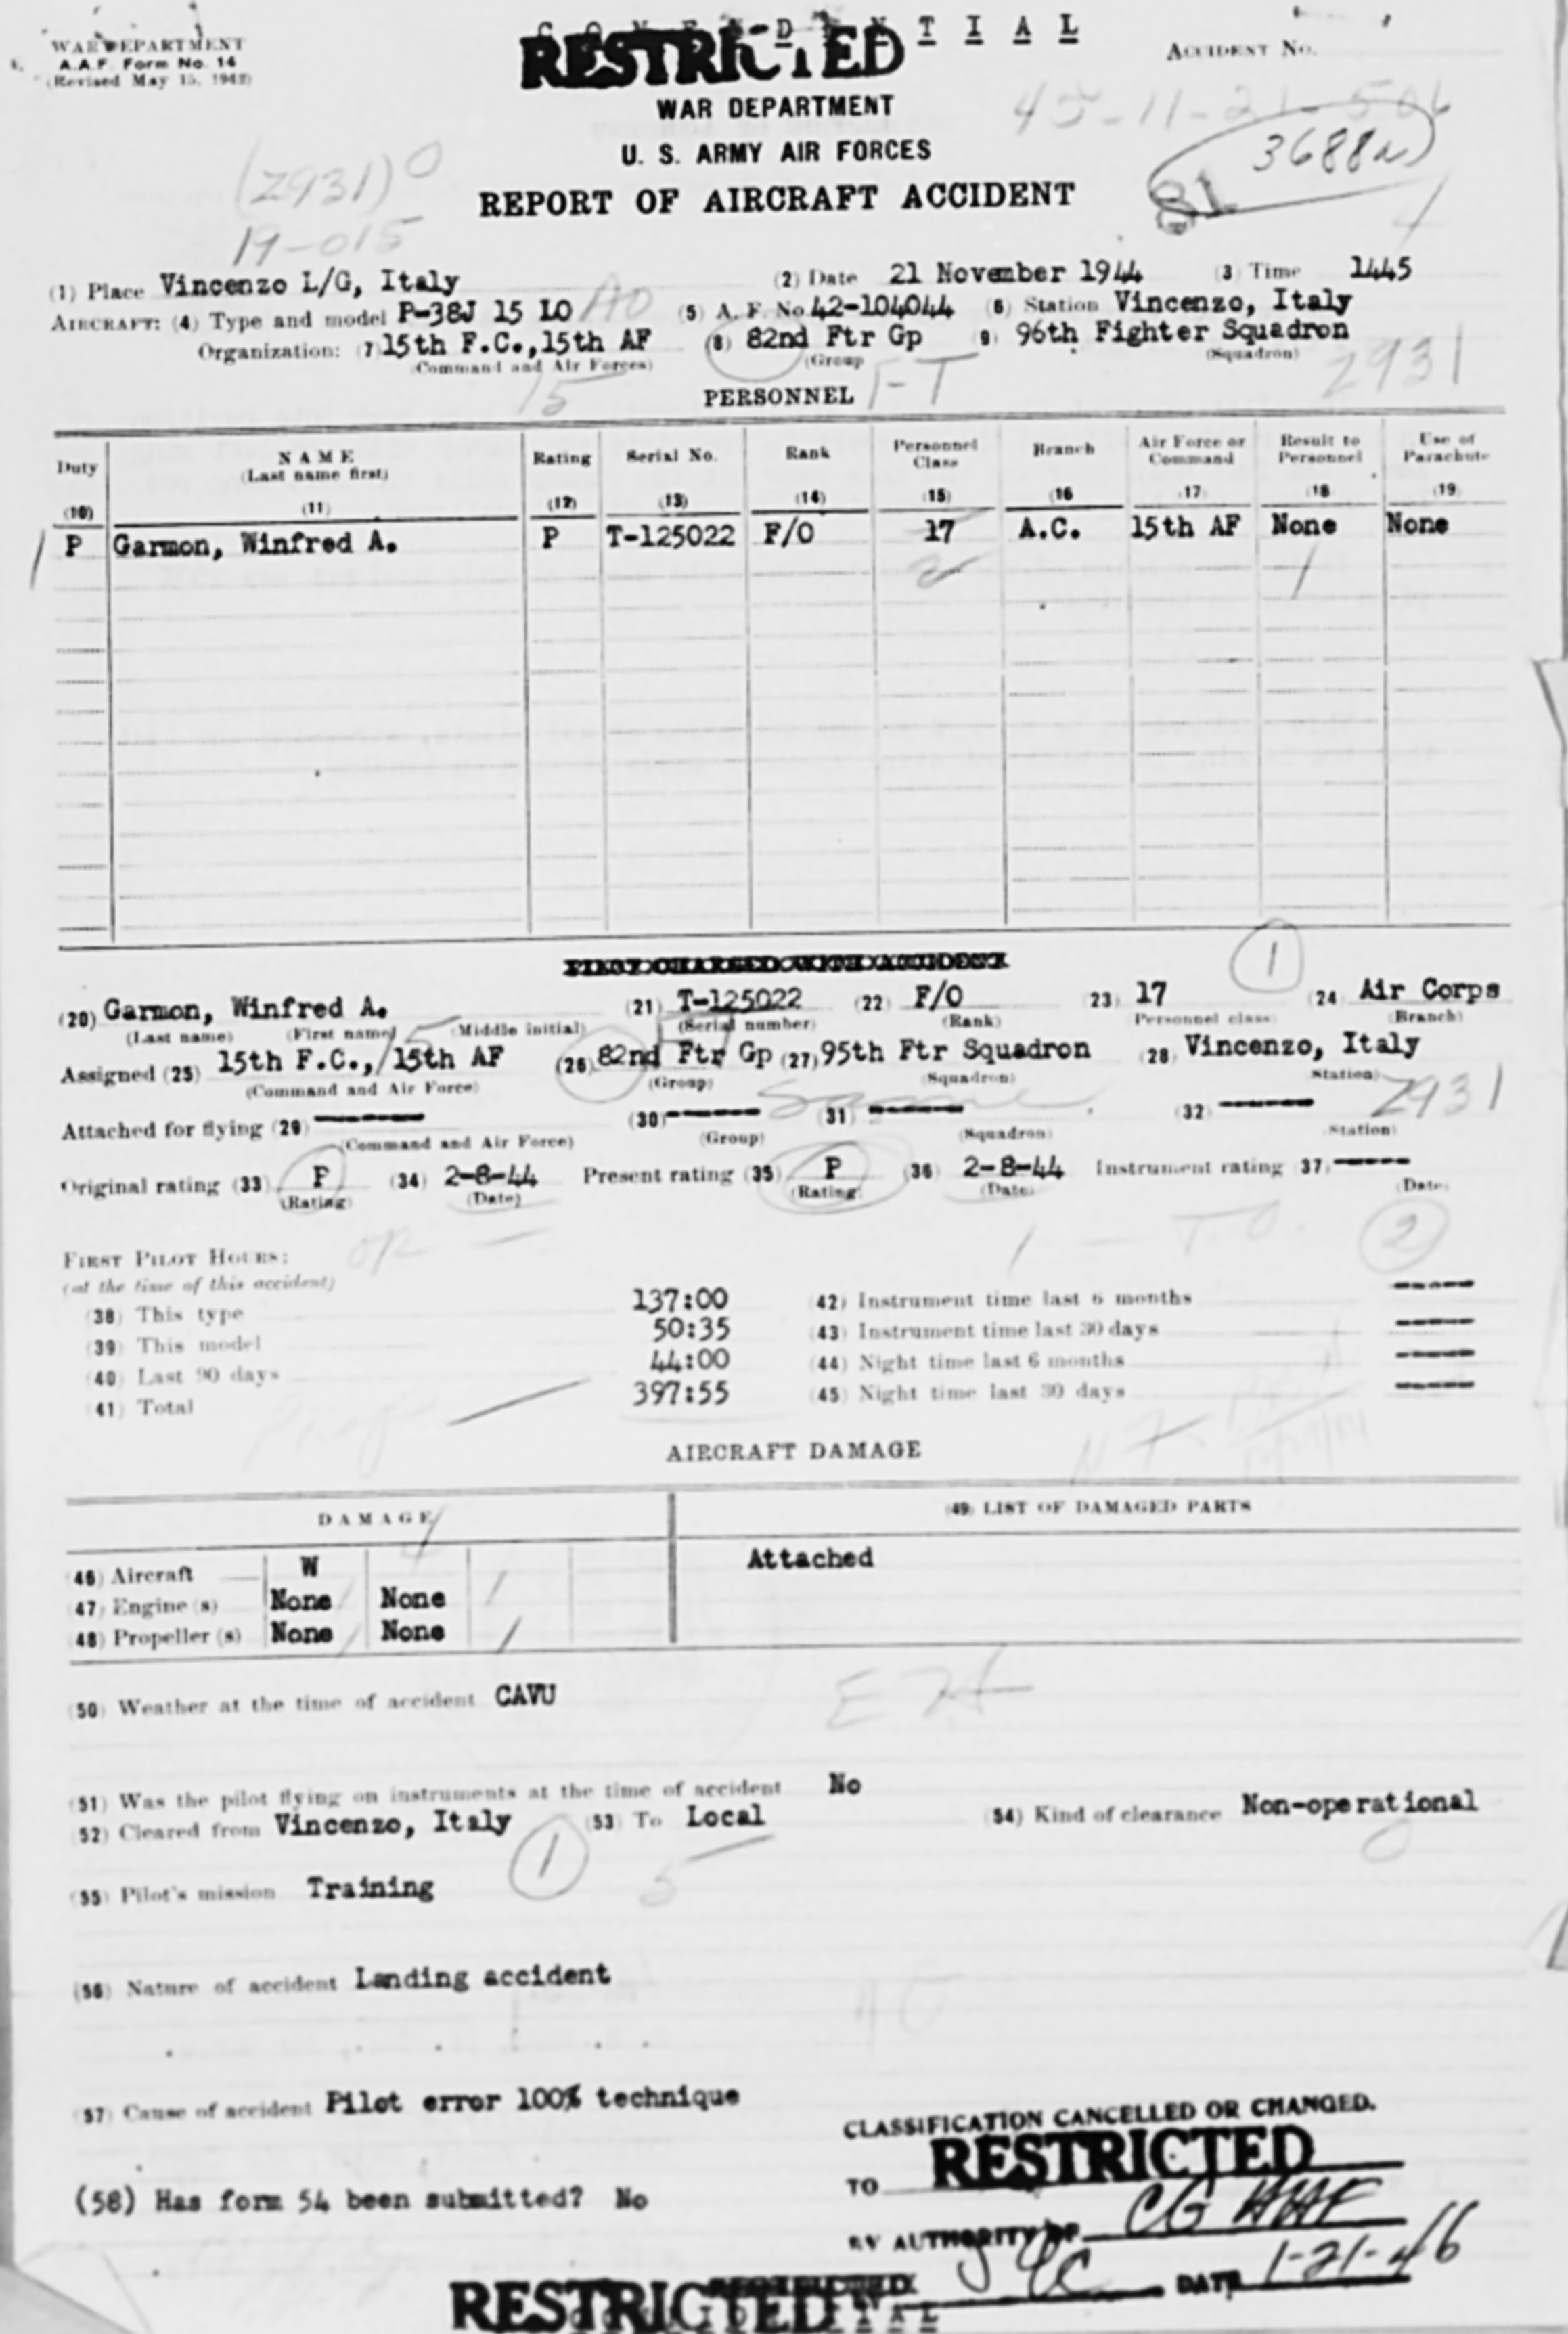 C O N F I D E N T I A L
RESTRICTED
WAR DEPARTMENT
A.A.F. Form No. 14
(Revised May 15, 1942)
ACCIDENT No.
WAR DEPARTMENT
45-11-21-506
U. S. ARMY AIR FORCES
3688
(2931) 0
81
REPORT OF AIRCRAFT ACCIDENT
19-015
(1) Place Vincenzo L/G, Italy (2) Date 21 November 1944 (3) Time 1445
AIRCRAFT: (4) Type and model P-38J 15 LO (5) A. F. No. 42-104044 (6) Station Vincenzo, Italy
Organization: (7) 15th F.C., 15th AF (8) 82nd Ftr Gp (9) 96th Fighter Squadron
(Command and Air Forces) (Group) (Squadron)
15 F-T 2931
PERSONNEL
Duty NAME (Last name first) Rating Serial No. Rank Personnel Class Branch Air Force or Command Result to Personnel Use of Parachute
(10) (11) (12) (13) (14) (15) (16) (17) (18) (19)
P Garmon, Winfred A. P T-125022 F/O 17 A.C. 15th AF None None
1
(20) Garmon, Winfred A. (21) T-125022 (22) F/O (23) 17 (24) Air Corps
(Last name) (First name) (Middle initial) (Serial number) (Rank) Personnel class (Branch)
Assigned (25) 15th F.C., 15th AF (26) 82nd Ftr Gp (27) 95th Ftr Squadron (28) Vincenzo, Italy
(Command and Air Force) (Group) (Squadron) Station
Same 2931
Attached for flying (29) ------- (30) ------- (31) ------- (32) -------
(Command and Air Force) (Group) (Squadron) (Station)
Original rating (33) P (34) 2-8-44 Present rating (35) P (36) 2-8-44 Instrument rating (37) -----
(Rating) (Date) (Rating) (Date) (Date)
2
FIRST PILOT HOURS:
(at the time of this accident)
(38) This type 137:00 (42) Instrument time last 6 months -----
(39) This model 50:35 (43) Instrument time last 30 days -----
(40) Last 90 days 44:00 (44) Night time last 6 months -----
(41) Total 397:55 (45) Night time last 30 days -----
AIRCRAFT DAMAGE
DAMAGE (49) LIST OF DAMAGED PARTS
(46) Aircraft W Attached
(47) Engine (s) None None
(48) Propeller (s) None None
(50) Weather at the time of accident CAVU
(51) Was the pilot flying on instruments at the time of accident No
(52) Cleared from Vincenzo, Italy (53) To Local (54) Kind of clearance Non-operational
1 5
(55) Pilot's mission Training
(56) Nature of accident Landing accident
(57) Cause of accident Pilot error 100% technique
CLASSIFICATION CANCELLED OR CHANGED.
TO RESTRICTED
(58) Has form 54 been submitted? No
BY AUTHORITY OF CG AAF
DATE 1-21-46
RESTRICTED